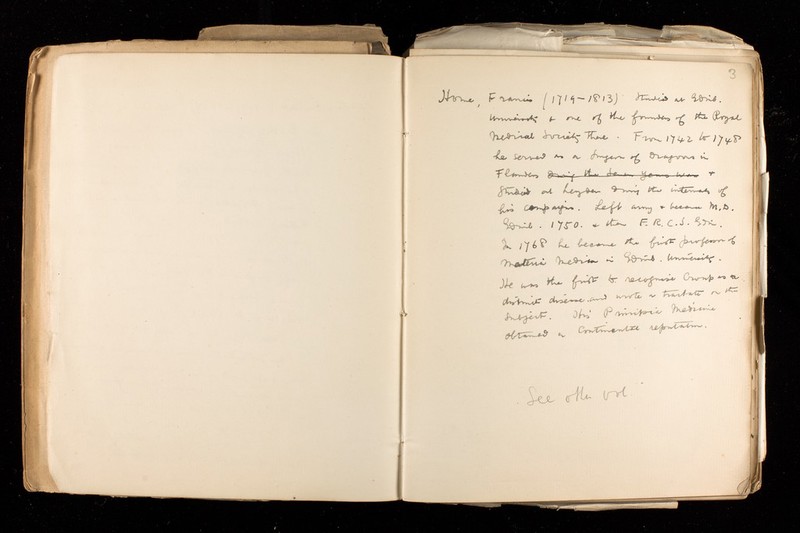 3
Home, Francis (1719-1813) Studied at Edin.
University & one of the founders of the Royal
Medical Society There. From 1742 to 1748
he served as a Surgeon of Dragoons in
Flanders during the Seven Years War &
Studied at Leyden during the intervals of
his campaigns. Left army & became M.D.
Edin. 1750. & then F.R.C.S. Edin.
In 1768 he became the first professor of
Materia Medica in Edinb. University.
He was the first to recognise Croup as a
distinct disease and wrote a tractate on the
Subject. His Principia Medicinae
obtained a Continental reputation.
See other vol